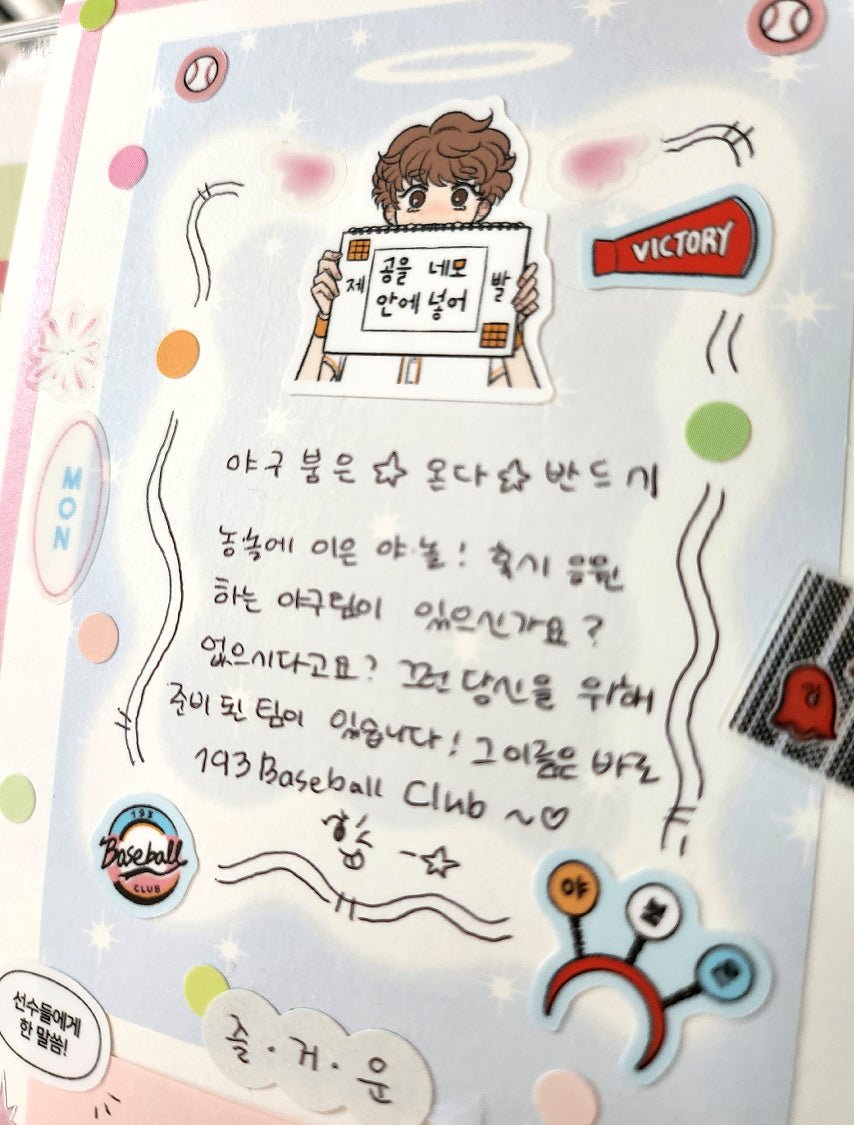 VICTORY
공을 네모
안에 넣어
제 발
야구 붐은 ☆ 온다 ☆ 반드시
MON
농놀에 이은 야·놀! 혹시 응원
하는 야구팀이 있으신가요?
없으시다고요? 그런 당신을 위해
준비 된 팀이 있습니다! 그 이름은 바로
193 Baseball Club ~♡
193
Baseball
CLUB
야
선수들에게
한 말씀!
즐·거·운